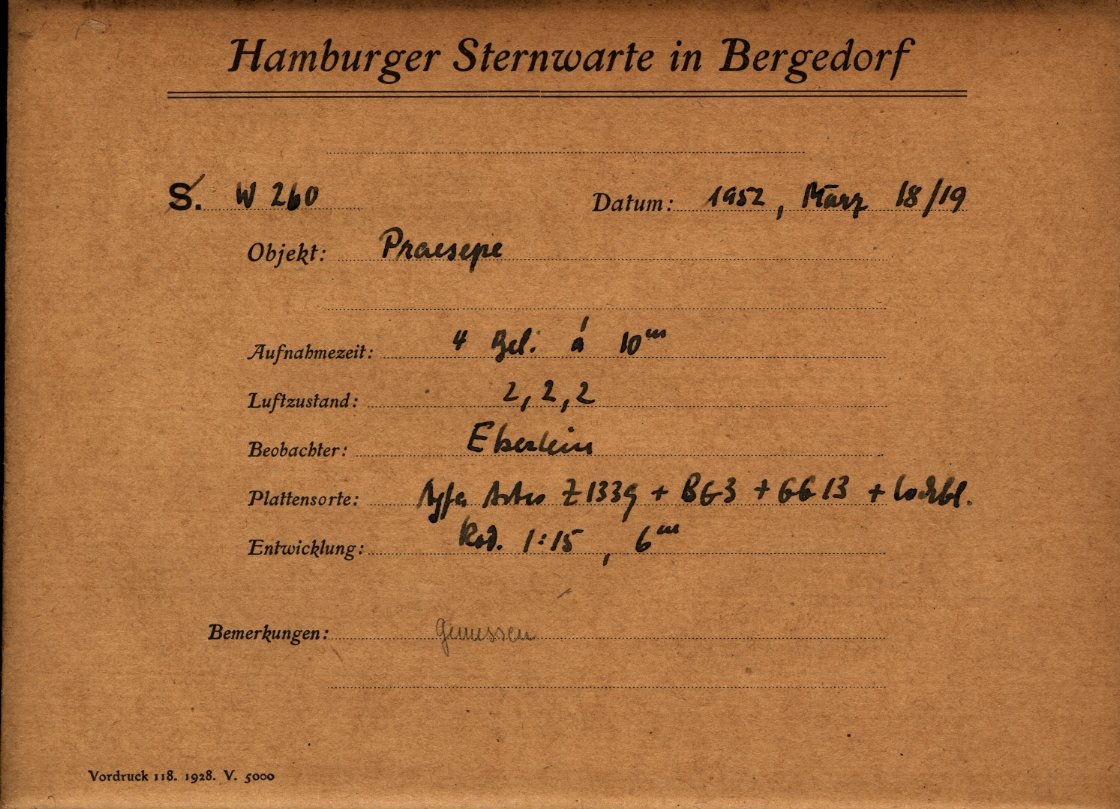 Hamburger Sternwarte in Bergedorf
S. W 260 Datum: 1952, März 18/19
Objekt: Praesepe
Aufnahmezeit: 4 Bel. á 10ᵐ
Luftzustand: 2, 2, 2
Beobachter: Eberlein
Plattensorte: Agfa Astro Z 1339 + BG3 + GG13 + Lochbl.
Entwicklung: Rod. 1:15, 6ᵐ
Bemerkungen: Gemessen
Vordruck 118. 1928. V. 5000